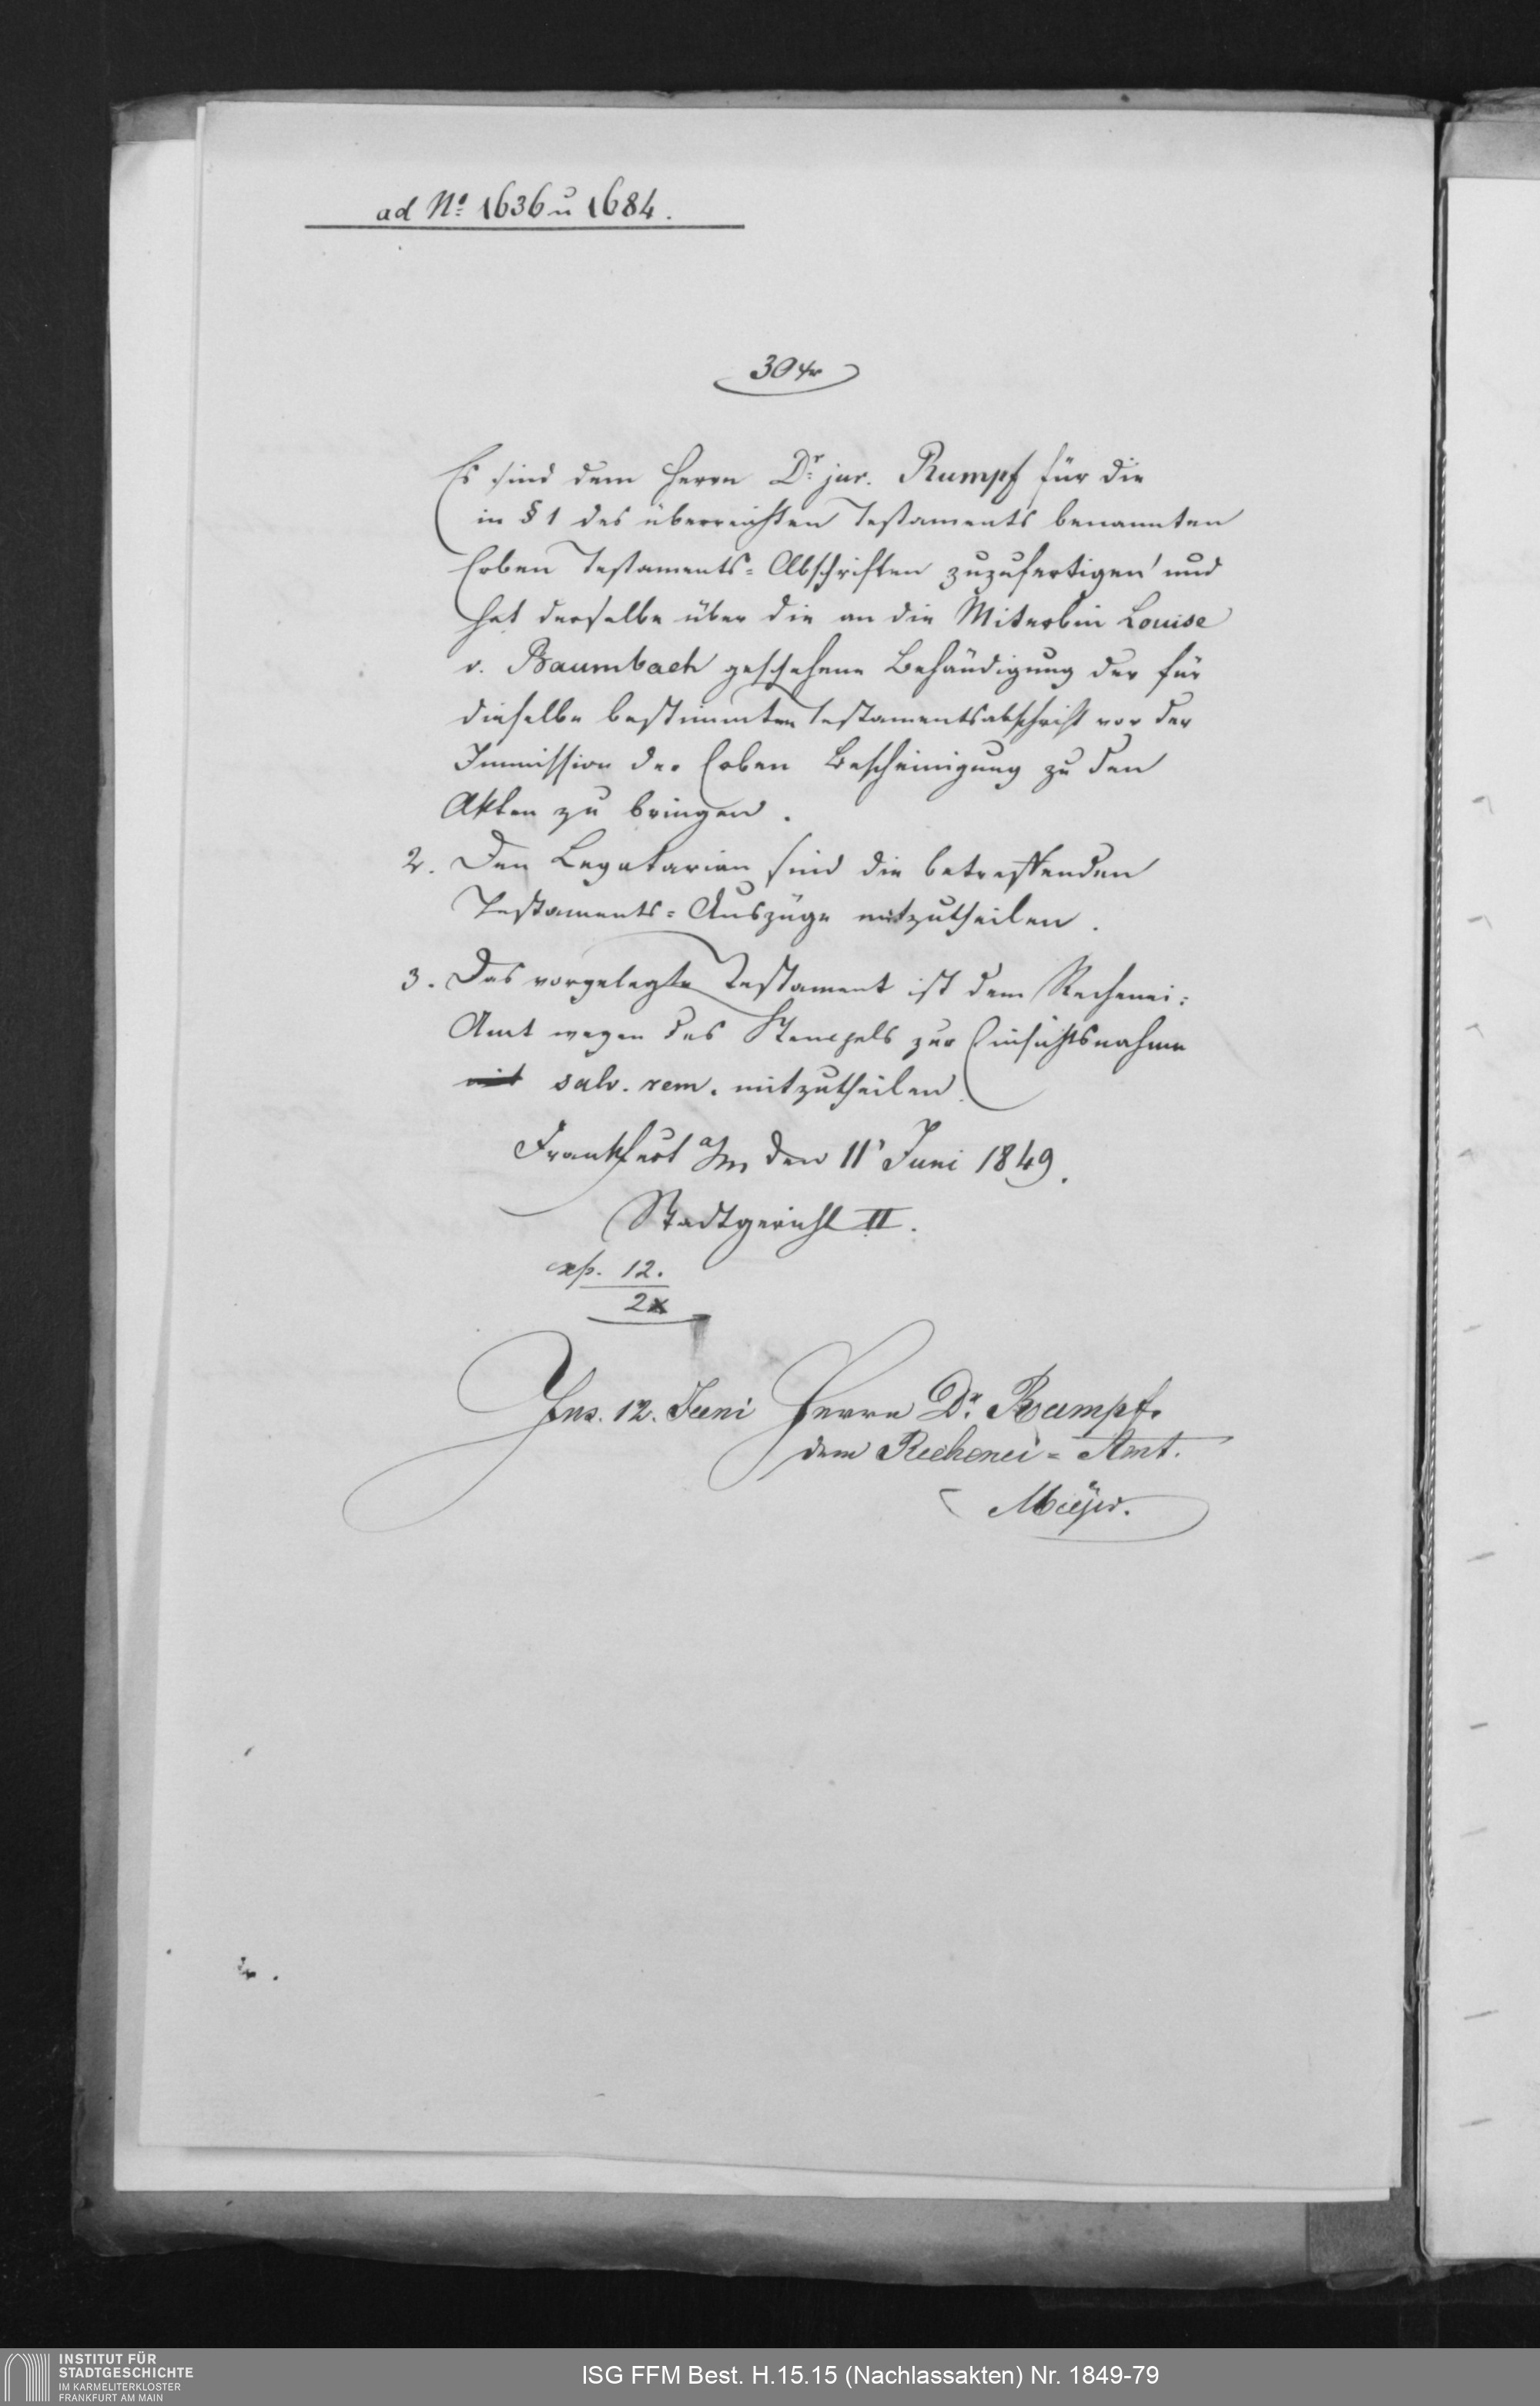 ad No. 1636 u 1684.
30 xr
Es sind dem Herrn Dr. jur. Rumpf für die
in § 1 des überreichten Testaments benannten
Erben Testaments=Abschriften zuzufertigen und
hat derselbe über die an die Miterbin Louise
v. Baumbach geschehene Behändigung der für
dieselbe bestimmten Testamentsabschrift vor der
Immission der Erben Bescheinigung zu den
Akten zu bringen.
2. Den Legatarien sind die betreffenden
Testaments=Auszüge mitzutheilen.
3. Das vorgelegte Testament ist dem Rechenei=
Amt wegen des Stempels zur Einsichtsnahme
mit salv. rem. mitzutheilen
Frankfurt a/m den 11' Juni 1849.
Stadtgericht II.
exp. 12.
2x
Ins. 12. Juni Herrn Dr. Rumpf.
dem Rechenei=Amt.
INSTITUT FÜR
STADTGESCHICHTE
IM KARMELITERKLOSTER
FRANKFURT AM MAIN
ISG FFM Best. H.15.15 (Nachlassakten) Nr. 1849-79